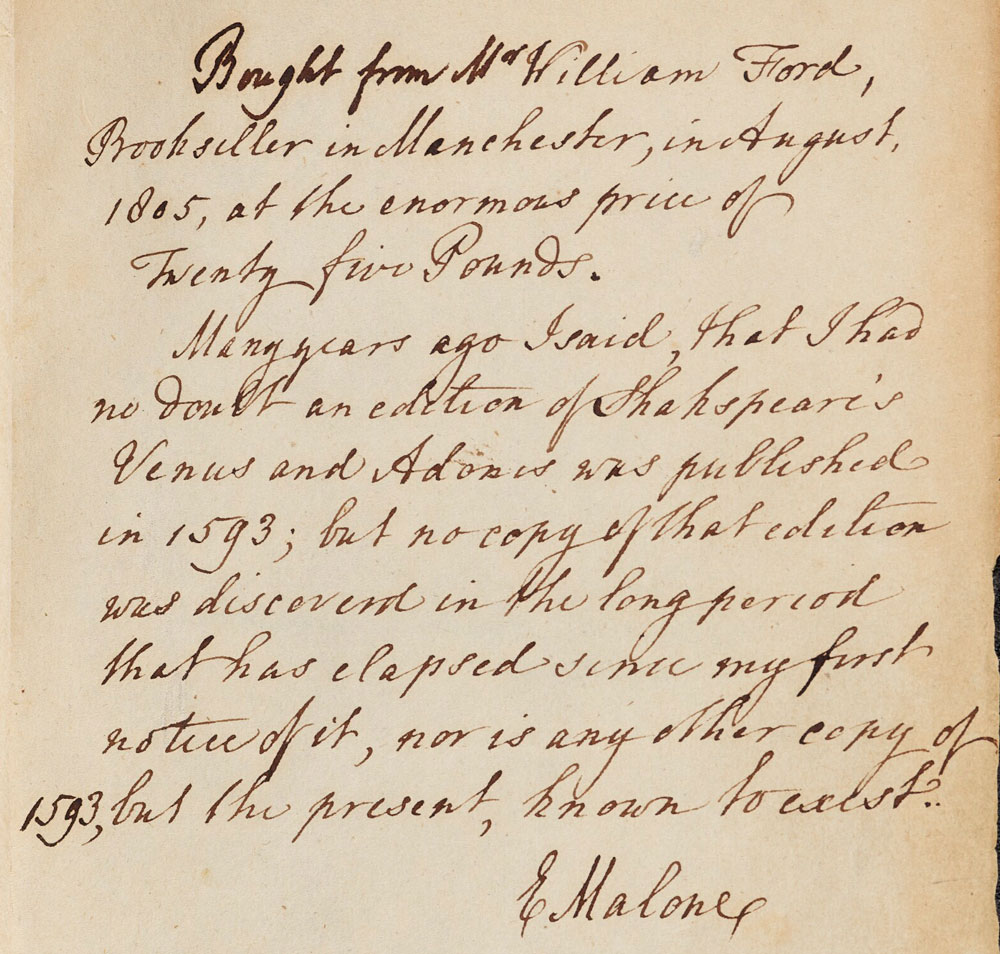 Bought from Mr William Ford,
Bookseller in Manchester, in August,
1805, at the enormous price of
Twenty five Pounds.
Many years ago I said, that I had
no doubt an edition of Shakspeare's
Venus and Adonis was published
in 1593; but no copy of that edition
was discoverd in the long period
that has elapsed since my first
notice of it, nor is any other copy of
1593, but the present, known to exist.
E Malone